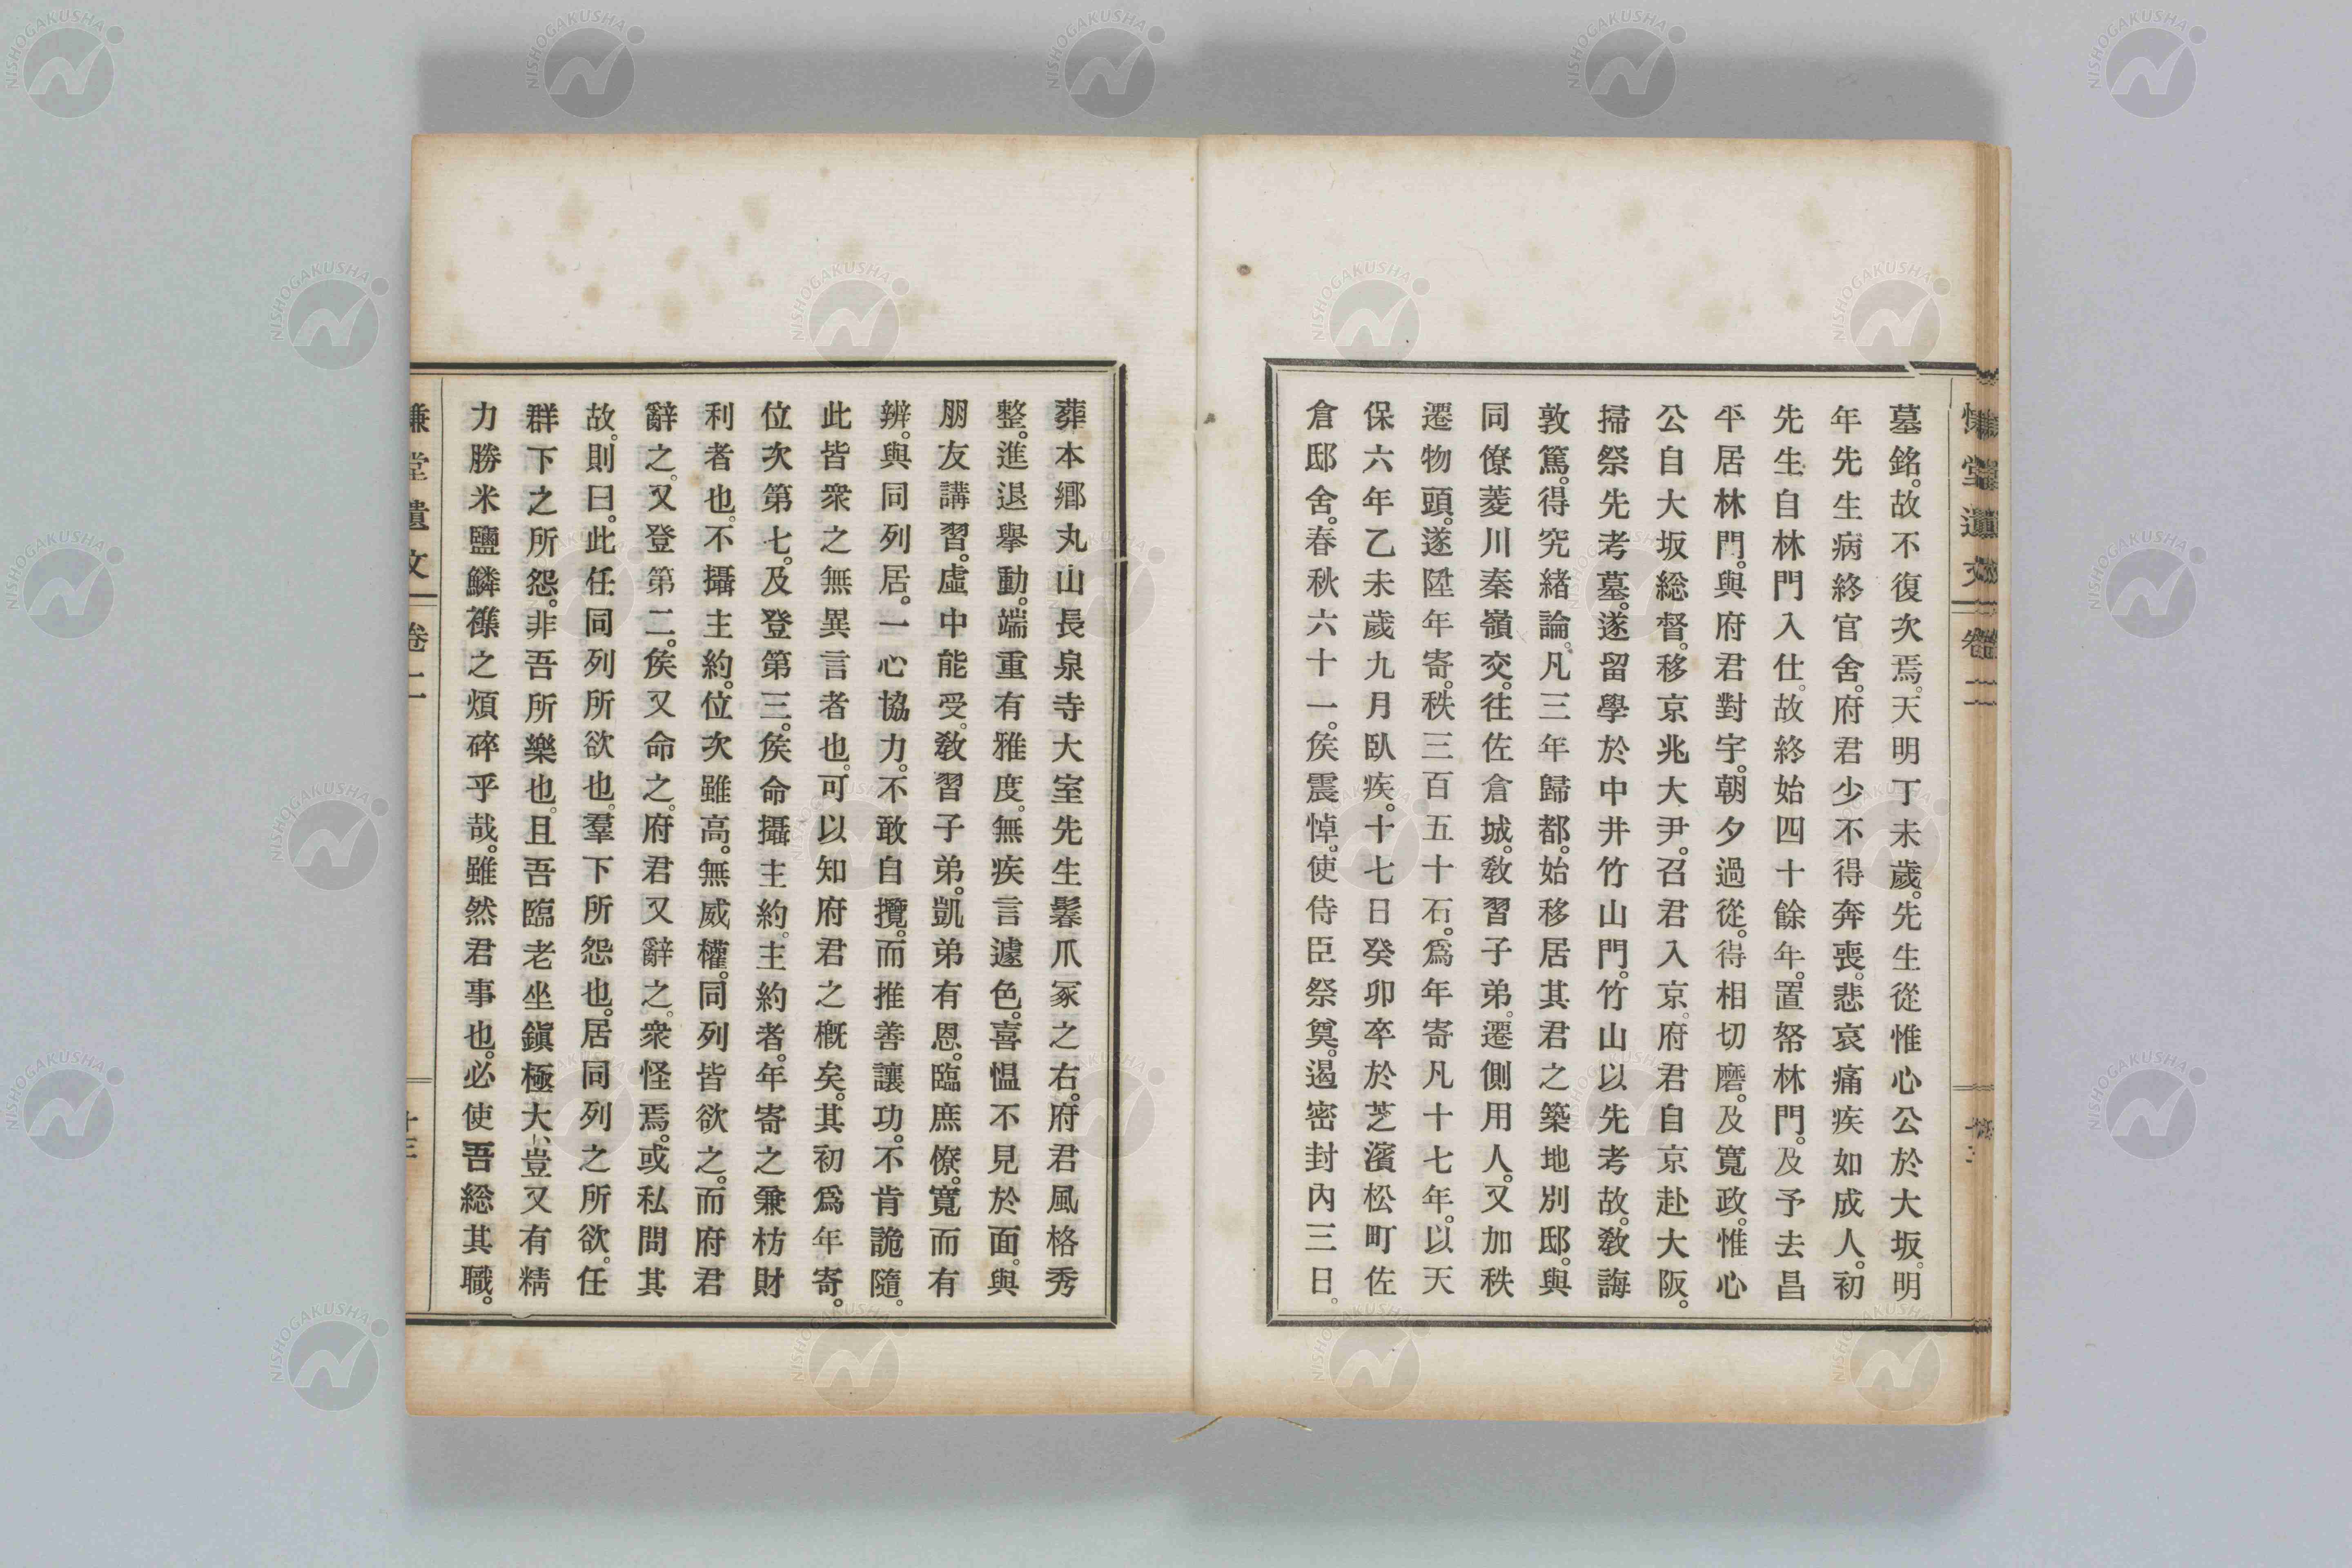 墓銘。故不復次焉。天明丁未歲。先生從惟心公於大坂。明
年先生病終官舍。府君少不得奔喪。悲哀痛疾如成人。初
先生自林門入仕。故終始四十餘年。置帑林門。及予去昌
平居林門。與府君對宇。朝夕過從。得相切磨。及寬政。惟心
公自大坂総督。移京兆大尹。召君入京。府君自京赴大阪。
掃祭先考墓。遂留學於中井竹山門。竹山以先考故。敎誨
敦篤。得究緖論。凡三年歸都。始移居其君之築地別邸。與
同僚菱川秦嶺交。往佐倉城。敎習子弟。遷側用人。又加秩
遷物頭。遂陞年寄。秩三百五十石。爲年寄凡十七年。以天
保六年乙未歲九月臥疾。十七日癸卯卒於芝濱松町佐
倉邸舍。春秋六十一。矦震悼。使侍臣祭奠。遏密封內三日。
葬本鄕丸山長泉寺大室先生鬈爪冢之右。府君風格秀
整。進退擧動。端重有雅度。無疾言遽色。喜慍不見於面。與
朋友講習。虛中能受。敎習子弟。凱弟有恩。臨庶僚。寬而有
辨。與同列居。一心協力。不敢自攬。而推善讓功。不肯詭隨。
此皆衆之無異言者也。可以知府君之槪矣。其初爲年寄。
位次第七。及登第三。矦命攝主約。主約者。年寄之兼枋財
利者也。不攝主約。位次雖高。無威權。同列皆欲之。而府君
辭之。又登第二。矦又命之。府君又辭之。衆怪焉。或私問其
故。則曰。此任同列所欲也。羣下所怨也。居同列之所欲。任
群下之所怨。非吾所樂也。且吾臨老坐鎭極大。豈又有精
力勝米鹽鱗襍之煩碎乎哉。雖然君事也。必使吾総其職。
慊堂遺文 卷二